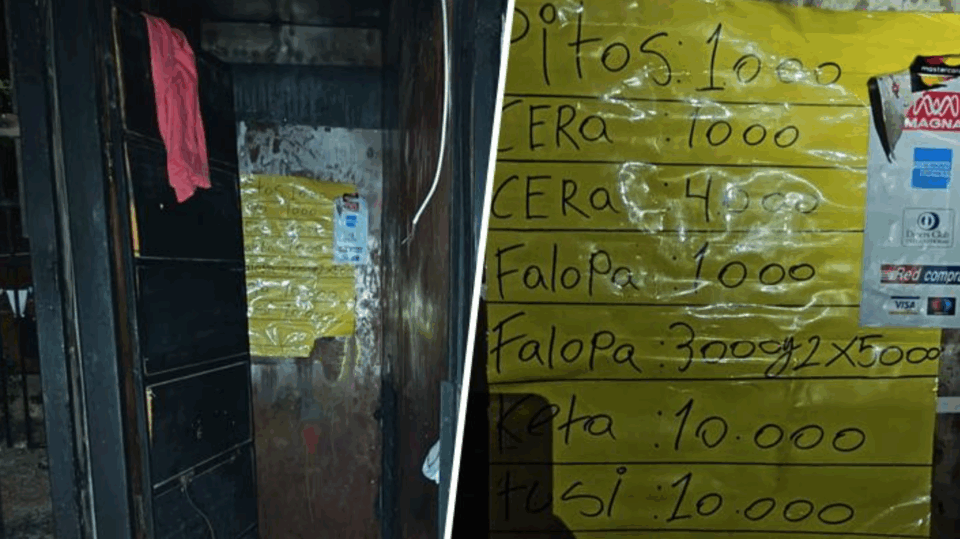 Pitos: 1000
CERa : 1000
CERa : 4.000
Falopa : 1000
Falopa : 3000 y 2x5000
Keta : 10.000
tusi : 10.000
mastercard
MAGNA
Diners Club
Red compra
VISA